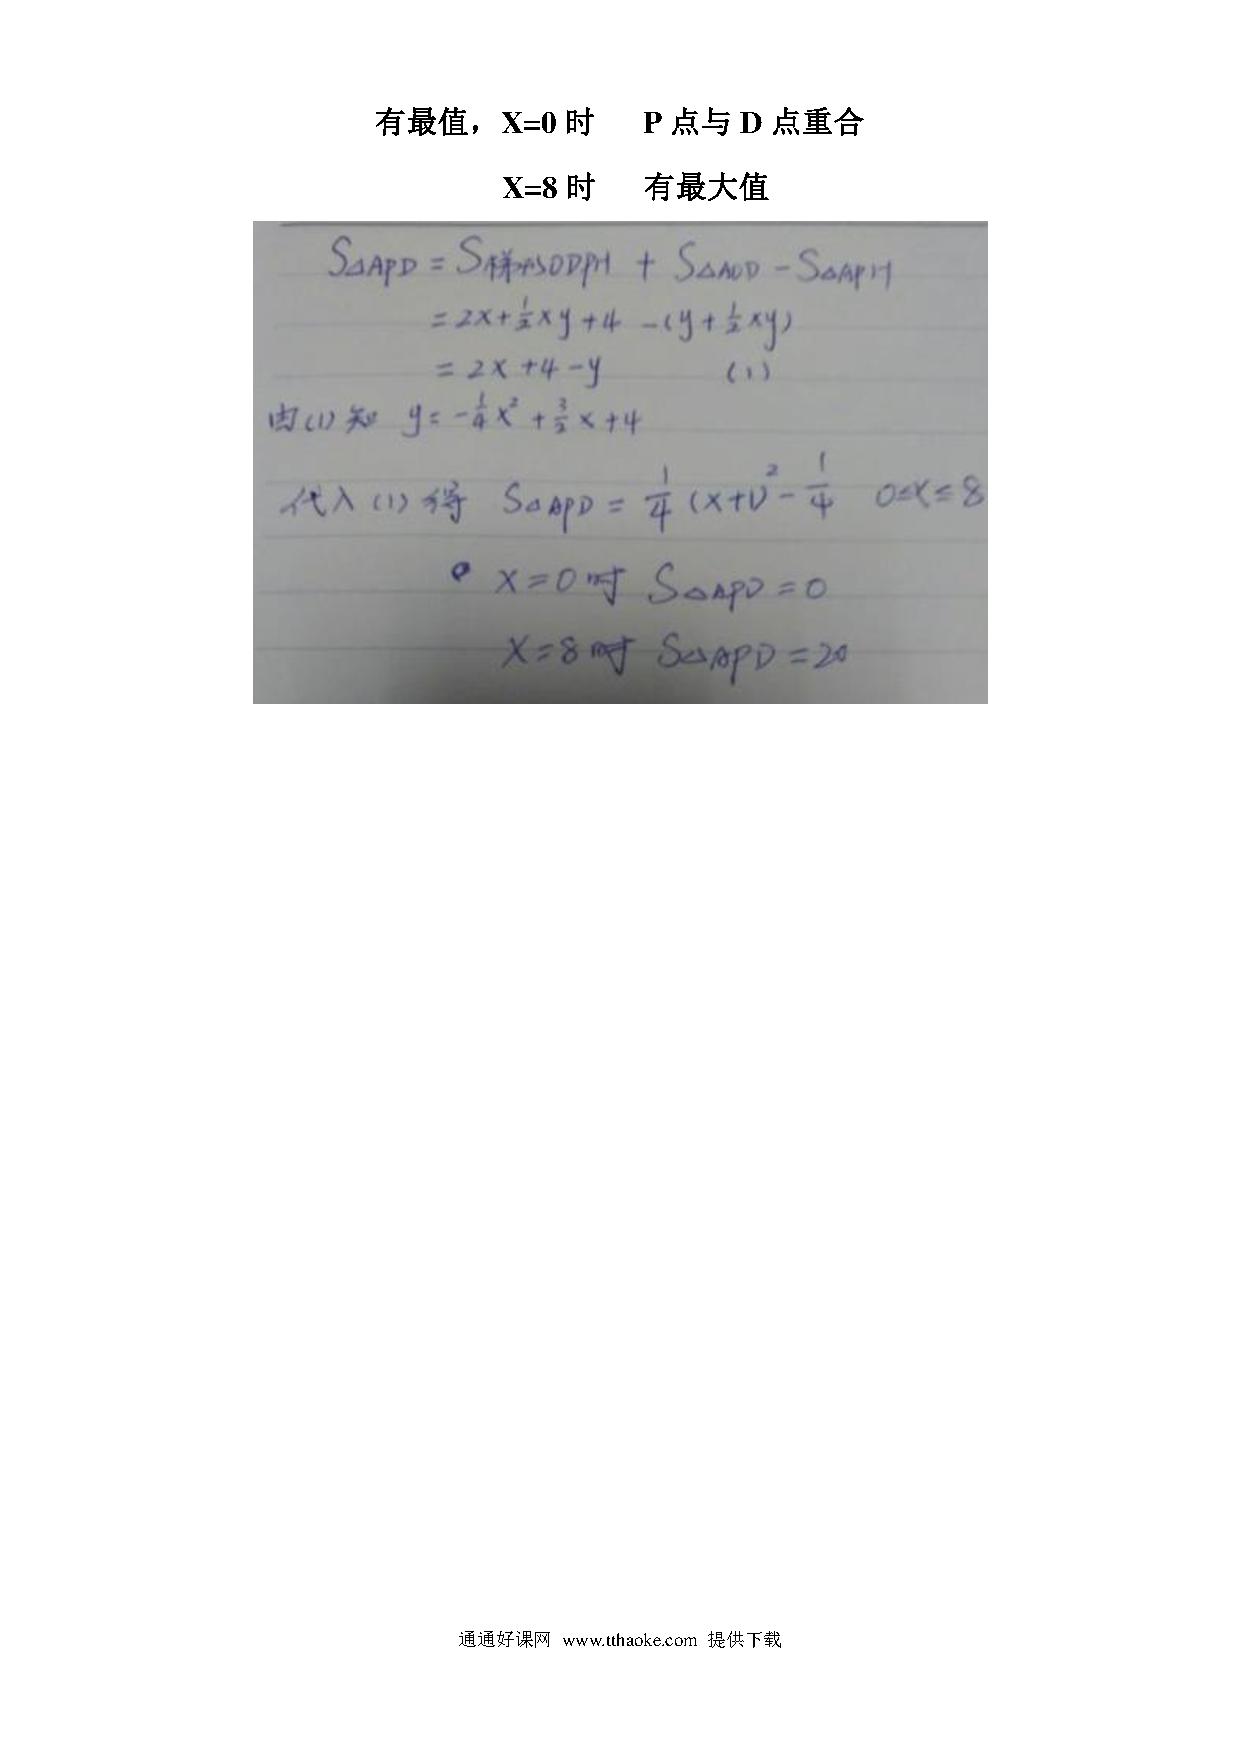 有最值，X=0 时 P 点与 D 点重合
X=8 时 有最大值
S△APD = S梯形ODPH + S△AOD - S△APH
= 2x + 1/2 xy + 4 - (y + 1/2 xy)
= 2x + 4 - y (1)
由(1)知 y = -1/4 x² + 3/2 x + 4
代入(1)得 S△APD = 1/4 (x+1)² - 1/4 0≤x≤8
x=0时 S△APD=0
x=8时 S△APD=20
通通好课网 www.tthaoke.com 提供下载